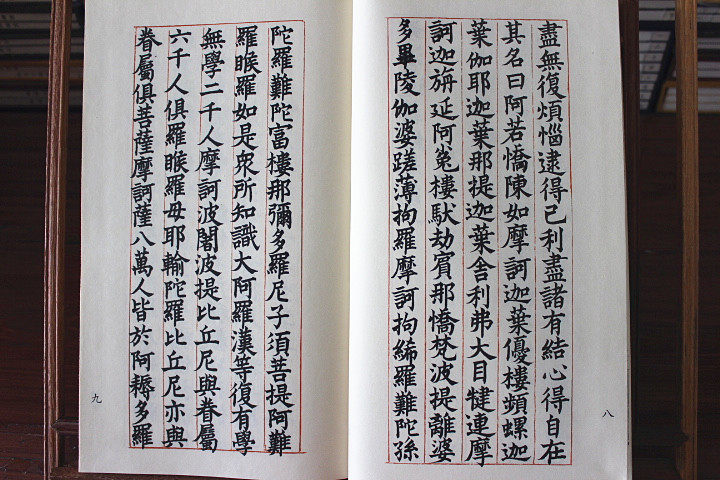 盡無復煩惱逮得己利盡諸有結心得自在
其名曰阿若憍陳如摩訶迦葉優樓頻螺迦
葉伽耶迦葉那提迦葉舍利弗大目犍連摩
訶迦旃延阿㝹樓馱劫賓那憍梵波提離婆
多畢陵伽婆蹉薄拘羅摩訶拘絺羅難陀孫
八
陀羅難陀富樓那彌多羅尼子須菩提阿難
羅睺羅如是衆所知識大阿羅漢等復有學
無學二千人摩訶波闍波提比丘尼與眷屬
六千人俱羅睺羅母耶輸陀羅比丘尼亦與
眷屬俱菩薩摩訶薩八萬人皆於阿耨多羅
九